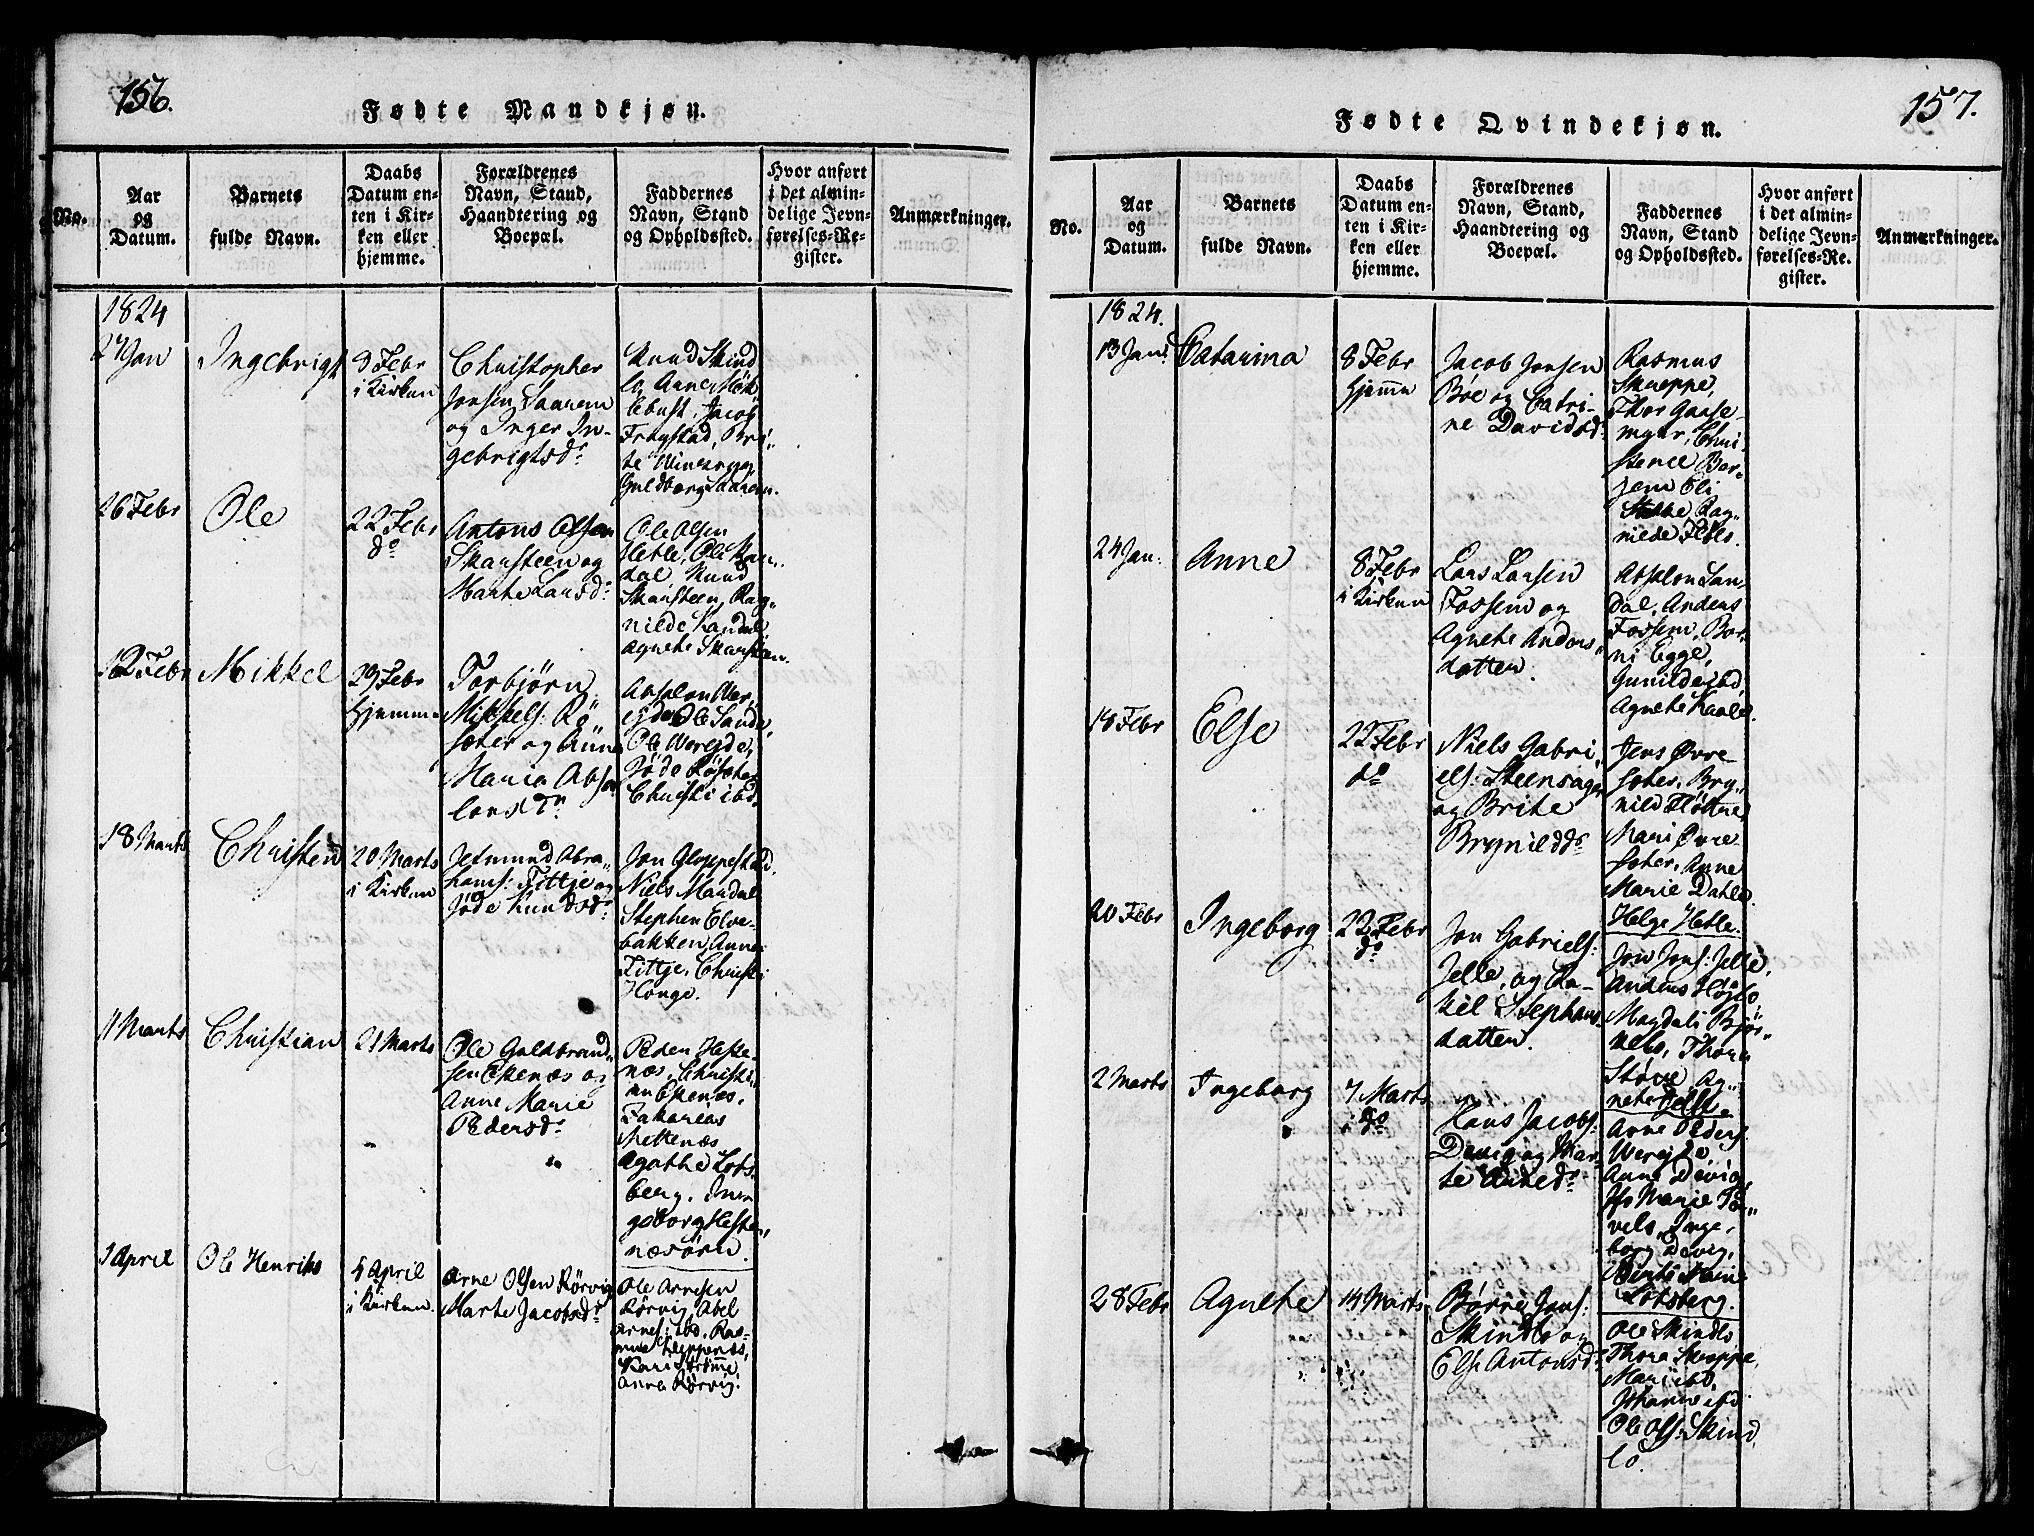 156.
Fødte Mandkjøn.
No.
Aar
og
Datum.
Barnets
fulde Navn.
Daabs
Datum en-
ten i Kir-
ken eller
hjemme.
Forældrenes
Navn, Stand,
Haandtering og
Boepæl.
Faddernes
Navn, Stand
og Opholdssted.
Hvor anført
i det almin-
delige Jevn-
førelses-Re-
gister.
Anmærkninger.
1824
27 Jan
Ingebrigt
8 Febr
i Kirken
Christopher
Jonsen Saarem
og Inger In-
gebrigtsdr
Knud Skind
lo, Anne
Jacob
Frøystad, Bri-
te
Guldborg Saarem.
26 Febr
Ole
22 Febr
do
Antons Olsen
Skarsteen og
Marte Larsdr
Ole Olsen
Hetle, Ole Kan-
dal, Knud
Skarsteen, Rag-
nilde Kandal
Agnete Skarsteen.
12 Febr
Mikkel
29 Febr
Hjemme
Torbjørn
Mikkels: Rø
sæter og Anne
Maria Abso
lonsdtr
Absalon Wer-
eide, Ole Sande,
Ole Wereide,
Jøde Røsæter
Christi ibd.
18 Marts
Christen
20 Marts
i Kirken
Jetmund Abra-
hams: Tittje og
Jøde Knudsdr
Jon Gloppestad,
Niels Mardal
Stephen Elve-
bakken, Anne
Tittje, Christi
Honge.
11 Marts
Christian
21 Marts
Ole Guldbrand-
sen Ekenæs og
Anne Marie
Pedersdr
Peder Heste-
næs, Christi-
an Ekenæs,
Zakarias
Mettenæs
Agathe Lots-
berg, In-
geborg Heste-
næsøren.
1 April
Ole Henriks
4 April
i Kirken.
Arne Olsen Rørvig
Marte Jacobsdr
Ole Arnesen
Rørvig, Abel
Arnes: ibd, Ras-
mus
Kari Strømme
Anne Rørvig.
157.
Fødte Qvindekjøn.
No.
Aar
og
Datum.
Barnets
fulde Navn.
Daabs
Datum en-
ten i Kir-
ken eller
hjemme.
Forældrenes
Navn, Stand,
Haandtering og
Boepæl.
Faddernes
Navn, Stand
og Opholdssted.
Hvor anført
i det almin-
delige Jevn-
førelses-Re-
gister.
Anmærkninger.
1824.
13 Jan:
Catarina
8 Febr
hjeme
Jacob Jonsen
Bøe og Catri-
ne Davidsdr
Rasmus
Skreppe,
Thor Gaase-
myr, Chri-
stence Ber-
jem Eli
Rag-
nilde
24 Jan:
Anne
8 Febr
i Kirken
Lars Larsen
Fossem og
Agnete Anders-
datter.
Absalon San-
dal, Anders
Fossem, Ber-
ni Egge,
Gunilde ibd,
Agnete
18 Febr
Else
22 Febr
do
Niels Gabri-
els: Steensager
og Brite
Bryniелdr
Jens Øvre-
seter, Bry-
nild Fløtne,
Mari Øvre
seter, Anne
Marie Dahle.
Helge Hetle.
20 Febr
Ingeborg
22 Febr
do
Jon Gabriels:
Jelle, og Ra-
kel Stephans
datter.
Jon Jons: Jelle,
Anders Højslo,
Magdeli Bjør-
nebo, Thore
Støve, Ag-
nete Jelle
2 Marts
Ingeborg
7 Marts
do
Hans Jacobs:
Devig og Mar-
te
Arne Peders:
Wereide
Anne Devig,
Marie
Inge-
borg Devig,
Lotsberg.
28 Febr
Agnete
14 Marts
Børre Jans:
Skindlo og
Else Antonsdr
Ole Skindlo
Thore Skreppe,
Mari ibd,
Johanne ibd
Ole Ols: Skind
lo.